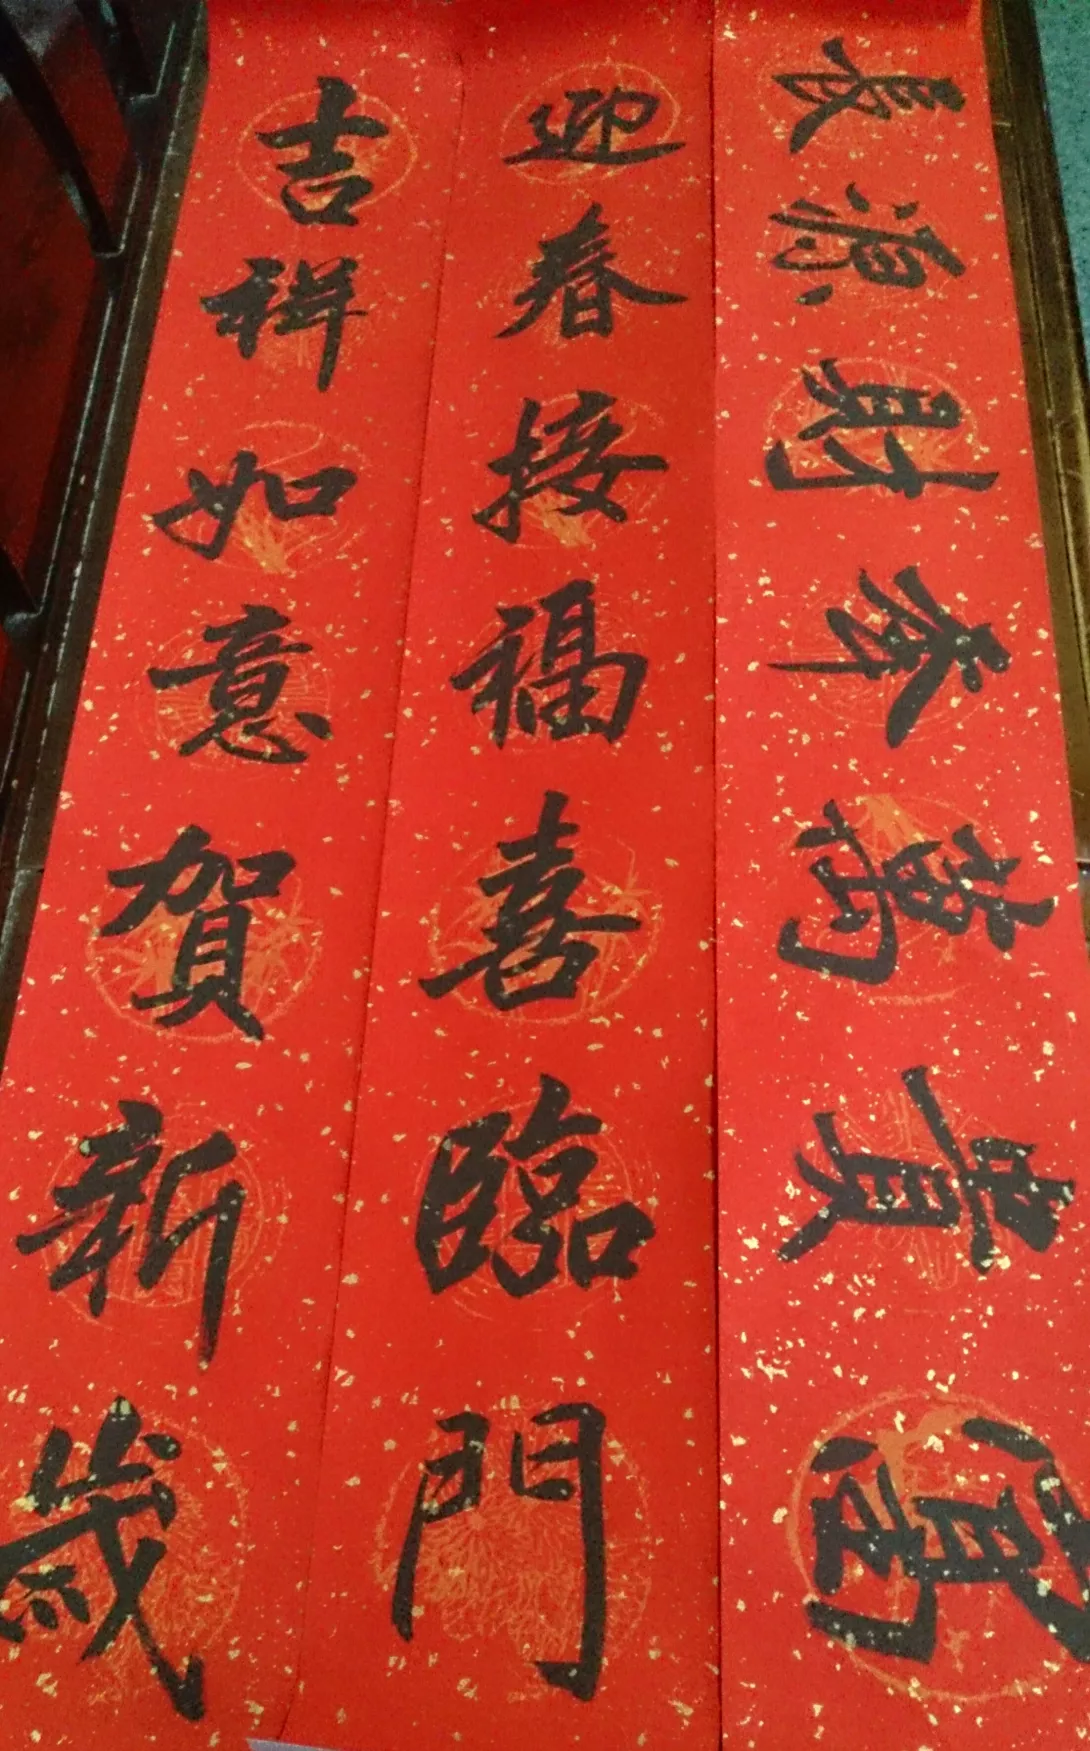 富貴萬年財源長
迎春接福喜臨門
吉祥如意賀新歲